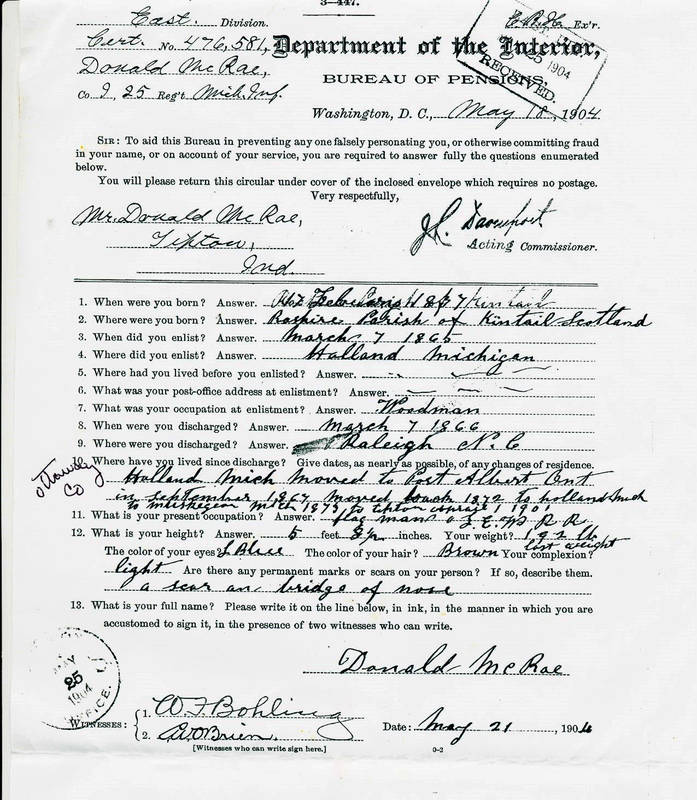 3—447.
East. Division.
Cert. No. 476,581,
Donald McRae,
Co I, 25 Reg't Mich. Inf.
Ex'r.
Department of the Interior,
BUREAU OF PENSIONS,
25 1904
RECEIVED.
Washington, D. C., May 18, 1904
SIR: To aid this Bureau in preventing any one falsely personating you, or otherwise committing fraud
in your name, or on account of your service, you are required to answer fully the questions enumerated
below.
You will please return this circular under cover of the inclosed envelope which requires no postage.
Very respectfully,
Mr. Donald McRae,
Tipton,
Ind.
Davenport
Acting Commissioner.
1. When were you born? Answer. Kintail
2. Where were you born? Answer. Parish of Kintail Scotland
3. When did you enlist? Answer. March 7 1865
4. Where did you enlist? Answer. Holland Michigan
5. Where had you lived before you enlisted? Answer.
6. What was your post-office address at enlistment? Answer.
7. What was your occupation at enlistment? Answer. Woodman
8. When were you discharged? Answer. March 7 1866
9. Where were you discharged? Answer. Raleigh N. C
Where have you lived since discharge? Give dates, as nearly as possible, of any changes of residence.
Ottawa Co
Holland Mich moved to Port Albert Ont
in september 1867 moved back 1872 to holland Mich
to muskegon mich 1873 to tipton 1901
11. What is your present occupation? Answer. flag man R R
12. What is your height? Answer. 5 feet inches. Your weight? 192 lb
last weight
The color of your eyes? Blue The color of your hair? Brown Your complexion?
light Are there any permanent marks or scars on your person? If so, describe them.
a scar on bridge of nose
13. What is your full name? Please write it on the line below, in ink, in the manner in which you are
accustomed to sign it, in the presence of two witnesses who can write.
Donald McRae
MAY
25
1904
OFFICE.
WITNESSES:
1. W. F. Bohling
2. O'Brien.
[Witnesses who can write sign here.]
Date: May 21, 1904
0-2